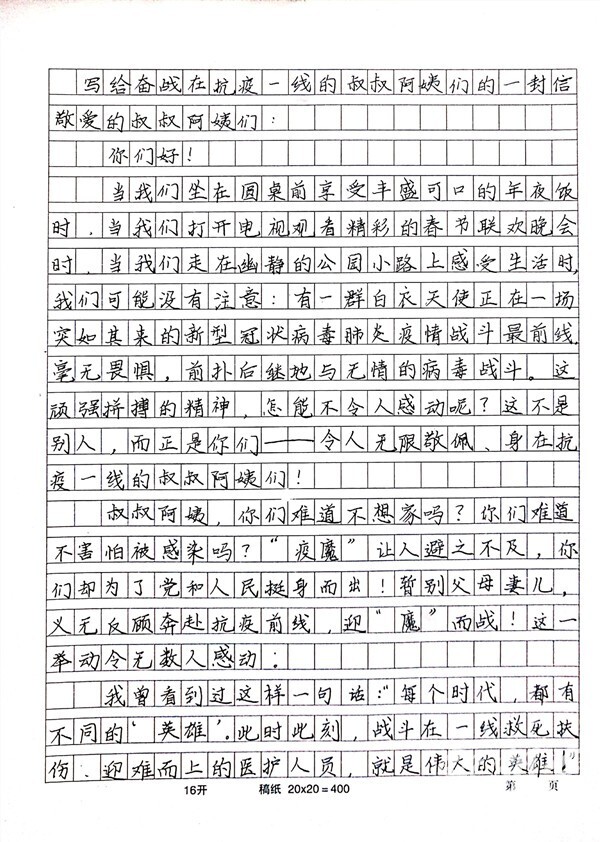 写给奋战在抗疫一线的叔叔阿姨们的一封信
敬爱的叔叔阿姨们:
你们好!
当我们坐在圆桌前享受丰盛可口的年夜饭
时,当我们打开电视观看精彩的春节联欢晚会
时,当我们走在幽静的公园小路上感受生活时,
我们可能没有注意:有一群白衣天使正在一场
突如其来的新型冠状病毒肺炎疫情战斗最前线,
毫无畏惧,前扑后继地与无情的病毒战斗。这
顽强拼搏的精神,怎能不令人感动呢?这不是
别人,而正是你们——令人无限敬佩、身在抗
疫一线的叔叔阿姨们!
叔叔阿姨,你们难道不想家吗?你们难道
不害怕被感染吗?“疫魔”让人避之不及,你
们却为了党和人民挺身而出!暂别父母妻儿,
义无反顾奔赴抗疫前线,迎“魔”而战!这一
举动令无数人感动:
我曾看到过这样一句话:“每个时代,都有
不同的‘英雄’。此时此刻,战斗在一线救死扶
伤、迎难而上的医护人员,就是伟大的英雄!”
16开 稿纸 20x20=400 第 页